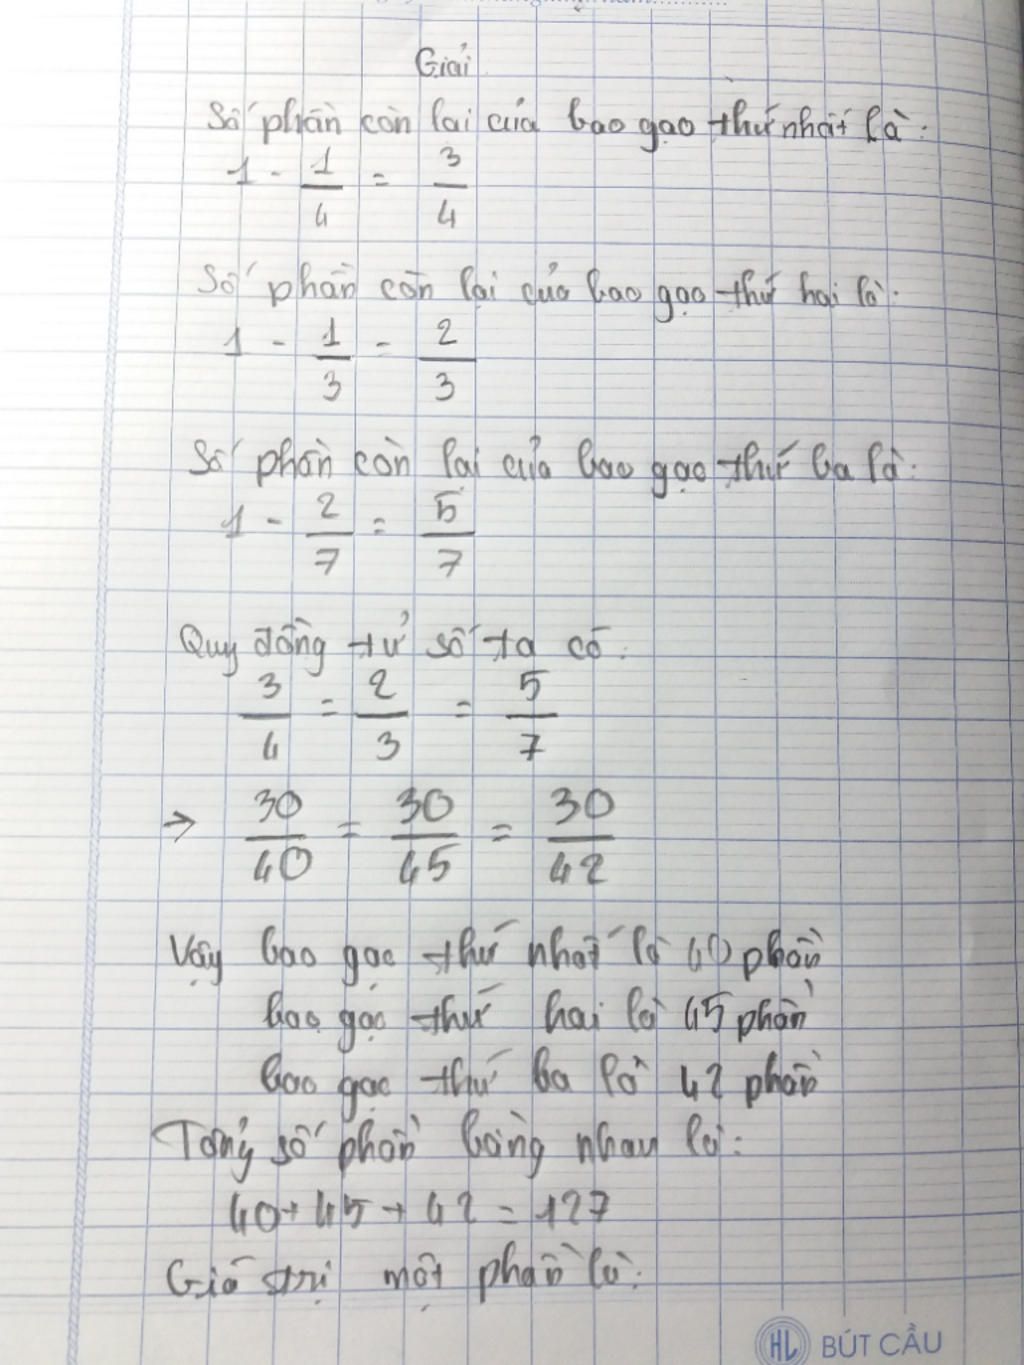 Giải
Số phần còn lại của bao gạo thứ nhất là:
1 - 1/4 = 3/4
Số phần còn lại của bao gạo thứ hai là:
1 - 1/3 = 2/3
Số phần còn lại của bao gạo thứ ba là:
1 - 2/7 = 5/7
Quy đồng tử số ta có:
3/4 = 2/3 = 5/7
→ 30/40 = 30/45 = 30/42
Vậy bao gạo thứ nhất là 40 phần
bao gạo thứ hai là 45 phần
bao gạo thứ ba là 42 phần
Tổng số phần bằng nhau là:
40 + 45 + 42 = 127
Giá trị một phần là:
HL BÚT CẦU